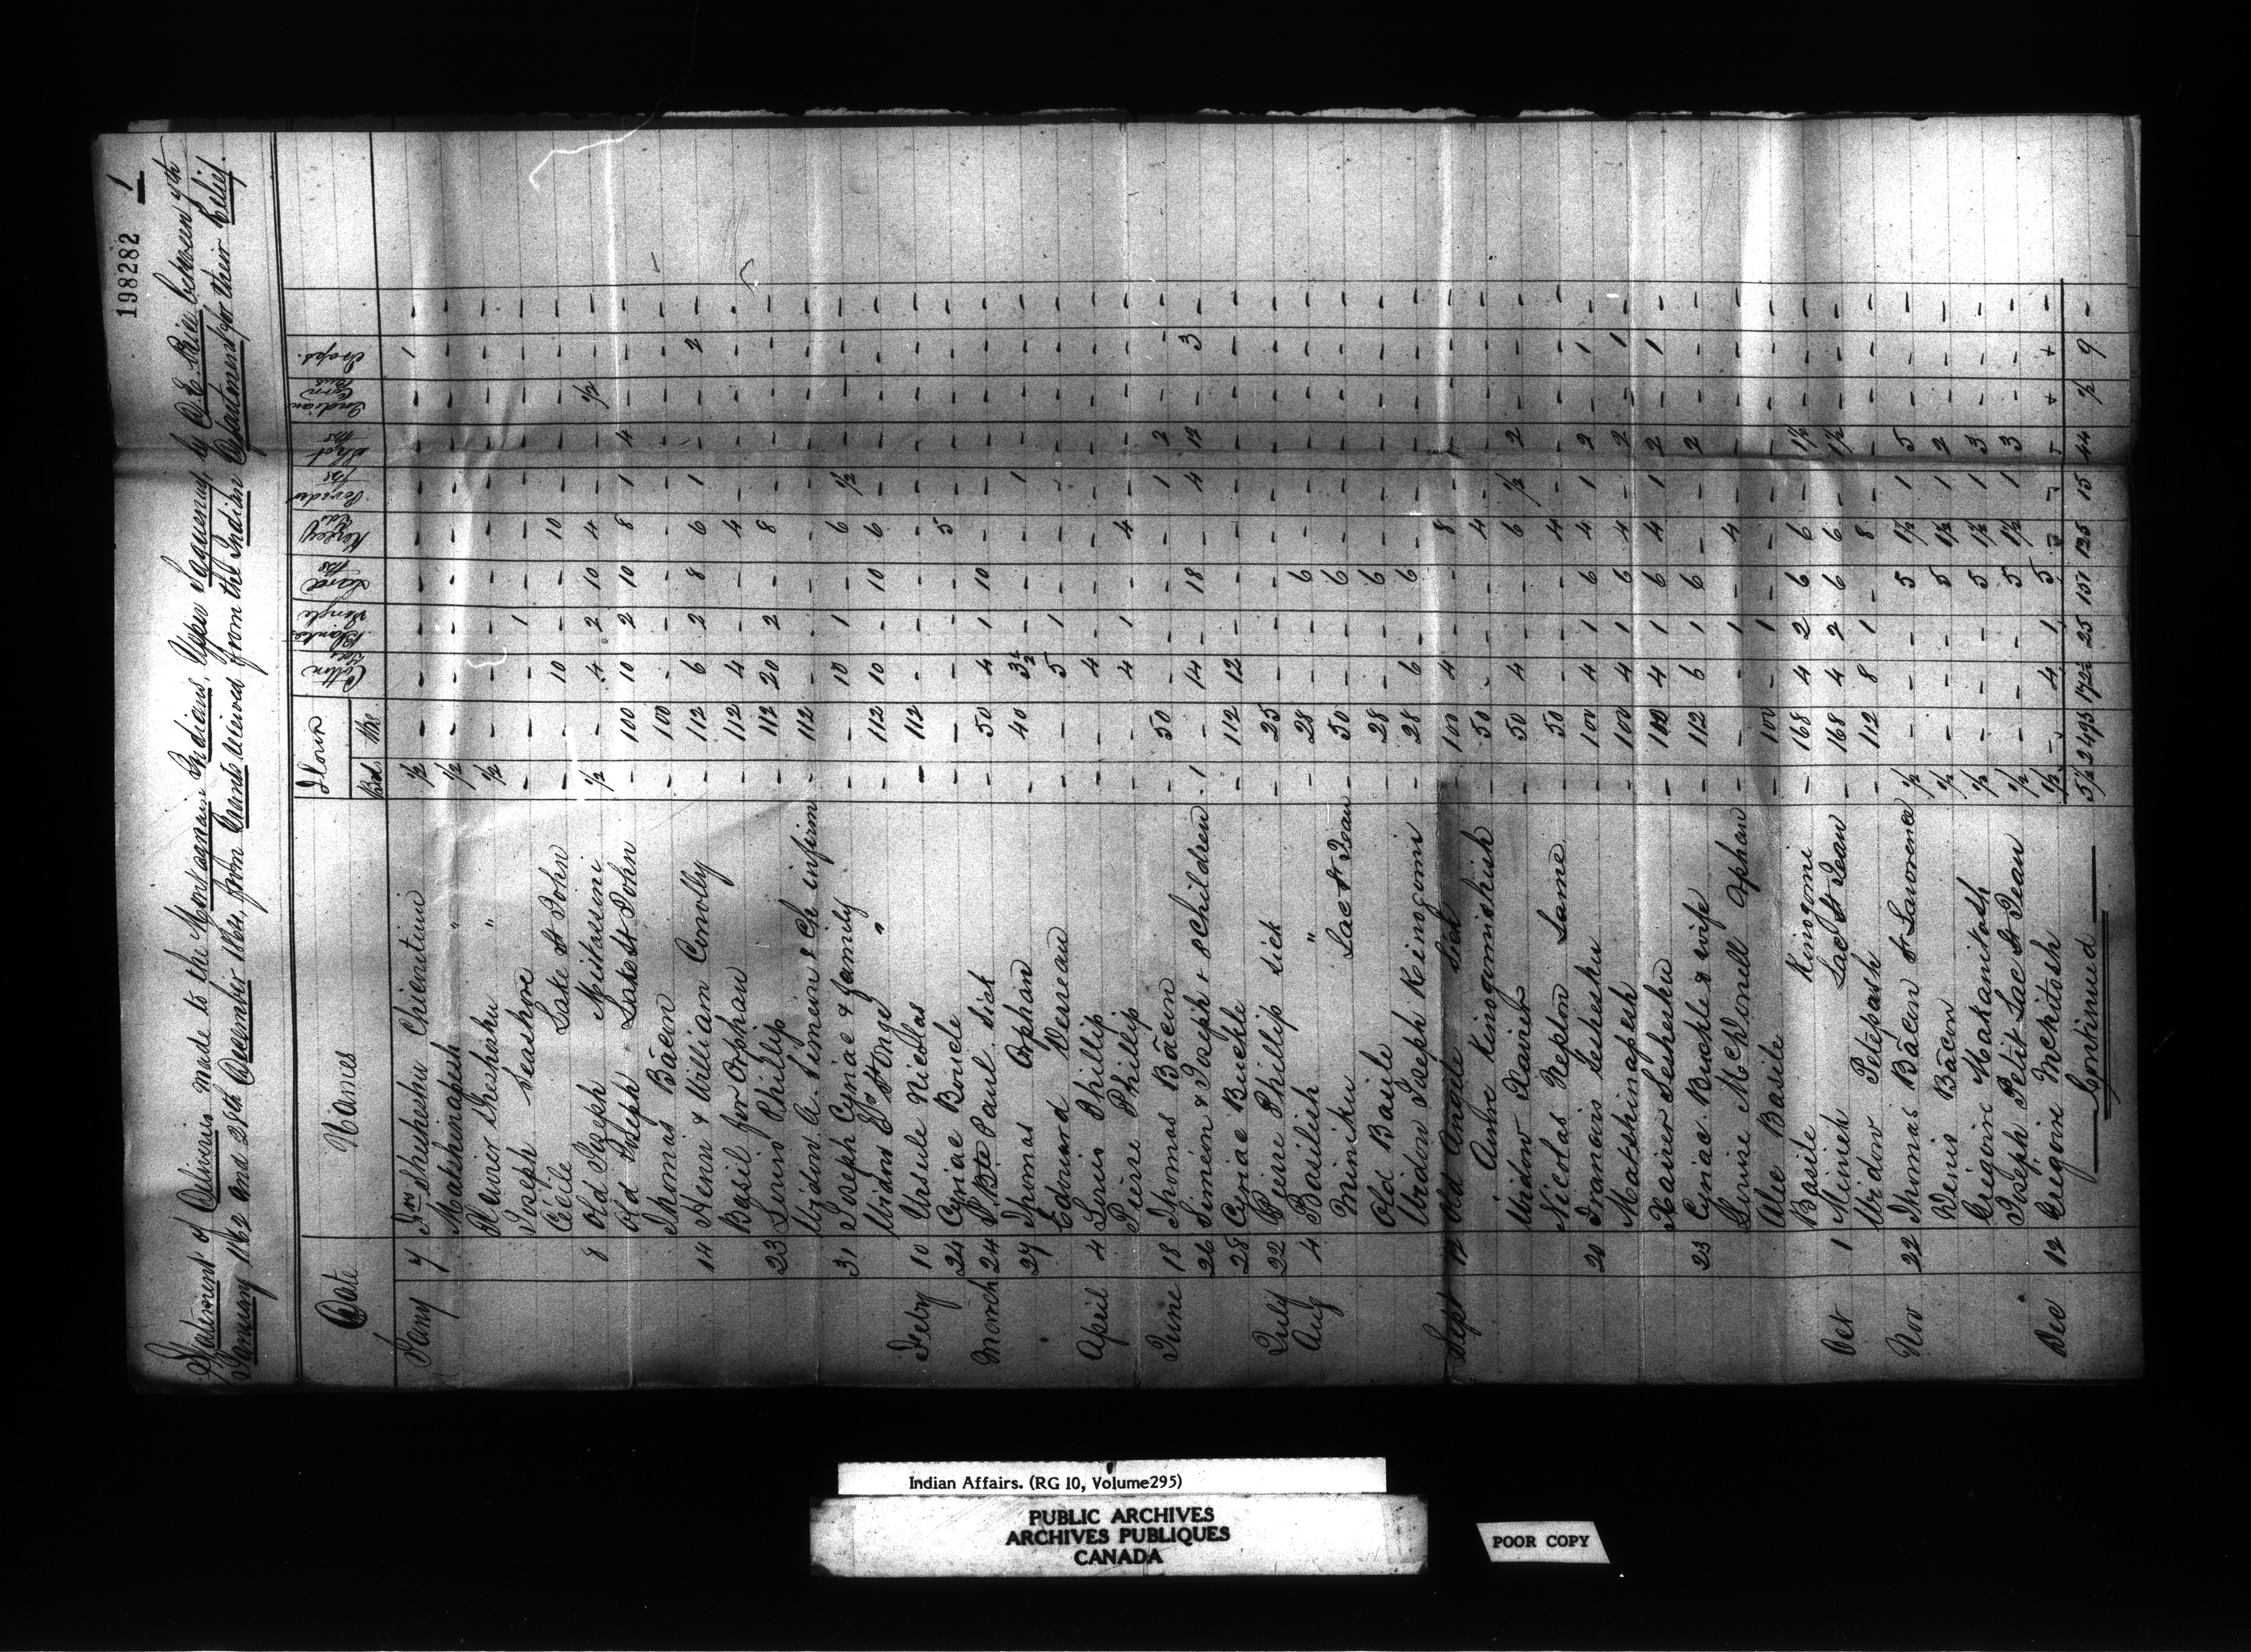 198282 1
Statement of Deliveries made to the Montagnais Indians, Upper Saguenay, by D. E. Price between 7th
January 1862 and 21st December 1864, from Goods received from the Indian Department for their Relief.
Date Names Flour Cotton Yds Blankets Single Lard lbs Kersey Yds Powder lbs Shot lbs Indian Corn Bus Traps.
Brl. lbs
Jany 7 Shesheshu Chicoutimi ½ - - - - - - - - 1 -
Matshinapesh " ½ - - - - - - - - - -
Xavier Shesheshu " ½ - - - - - - - - - -
Joseph Seashore - - - 1 - - - - - - -
Cecile Lake St John - - 10 - - 10 - - - - -
8 Old Joseph Mistassini ½ - 4 2 10 4 - - ½ - -
Old Joseph Lake St John - 100 10 2 10 8 1 4 - - -
Thomas Bäcon - 100 - - - - - - - - -
14 Henry & William Conolly - 112 6 2 8 6 1 - - 2 -
Basil for Orphan - 112 4 - - 4 - - - - -
23 Louis Phillip - 112 20 2 - 8 - - - - -
Widow A. Simeon & Ch infirm - 112 - - - - - - - - -
31 Joseph Cyriac & family - - 10 1 - 6 ½ - - - -
Widow St Onge " - 112 10 - 10 6 - - - - -
Feby 10 Ursule Nicolas - 112 - - - - - - - - -
24 Cyriac Boucle - - - - - 5 - - - - -
March 24 J. Bte Paul. Sick - 50 4 1 10 - - - - - -
27 Thomas Orphan - 40 3½ - - - 1 - - - -
Edouard Verreau - - 5 1 - - - - - - -
April 4 Louis Phillip - - 4 - - - - - - - -
Pierre Phillip - - 4 1 - 4 - - - - -
June 18 Thomas Bäcon - 50 - - - - 1 2 - - -
26 Simeon & Joseph & 8 children 1 - 14 - 18 - 4 12 - 3 -
28 Cyriac Buckle - 112 12 - - - - - - - -
July 22 Pierre Phillip Sick - 25 - - - - - - - - -
Aug 4 Basilish " - 28 - - 6 - - - - - -
Minisku Lac St Jean - 50 - - 6 - - - - - -
Old Basile - 28 - - 6 - - - - - -
Widow Joseph Kinogomi - 28 6 - 6 - - - - - -
Sept 12 Old Angele Sick - 100 4 - - 8 - - - - -
Anne Kinogomishish - 50 - - - 4 - - - - -
Widow Xavier - 50 4 - - 6 ½ 2 - - -
Nicolas Nepton Lame - 50 - - - 4 - - - - -
20 Francais Sesheshu - 100 4 1 6 4 1 2 - 1 -
Matshinapesh - 100 4 1 6 4 - 2 - 1 -
Xavier Sesheshu - 100 4 1 6 4 1 2 - 1 -
23 Cyriac Buckle & wife - 112 6 1 6 - - 2 - - -
Louise McDonell Orphan - - - 1 - 4 - - - - -
Alie Basile - 100 - 1 - - - - - - -
Basile Kinogomi - 168 4 2 6 6 - 1½ - - -
Oct 1 Minish Lac St Jean - 168 4 2 6 6 - 1½ - - -
Widow Petepash - 112 8 1 - 8 - - - - -
Nov 22 Thomas Bäcon St Lawrence ½ - - - 5 1½ 1 5 - - -
Denis Bäcon ½ - - - 5 1½ 1 2 - - -
Gregoire Makanitosh ½ - - - 5 1½ 1 3 - - -
Joseph Petit Lac St Jean ½ - - - 5 1½ 1 3 - - -
Dec 12 Gregoire Mckitosh ½ - 4 1 5
5½ 2493 172½ 25 151 125 15 44 ½ 9 -
Continued
Indian Affairs. (RG 10, Volume295)
PUBLIC ARCHIVES
ARCHIVES PUBLIQUES
CANADA
POOR COPY